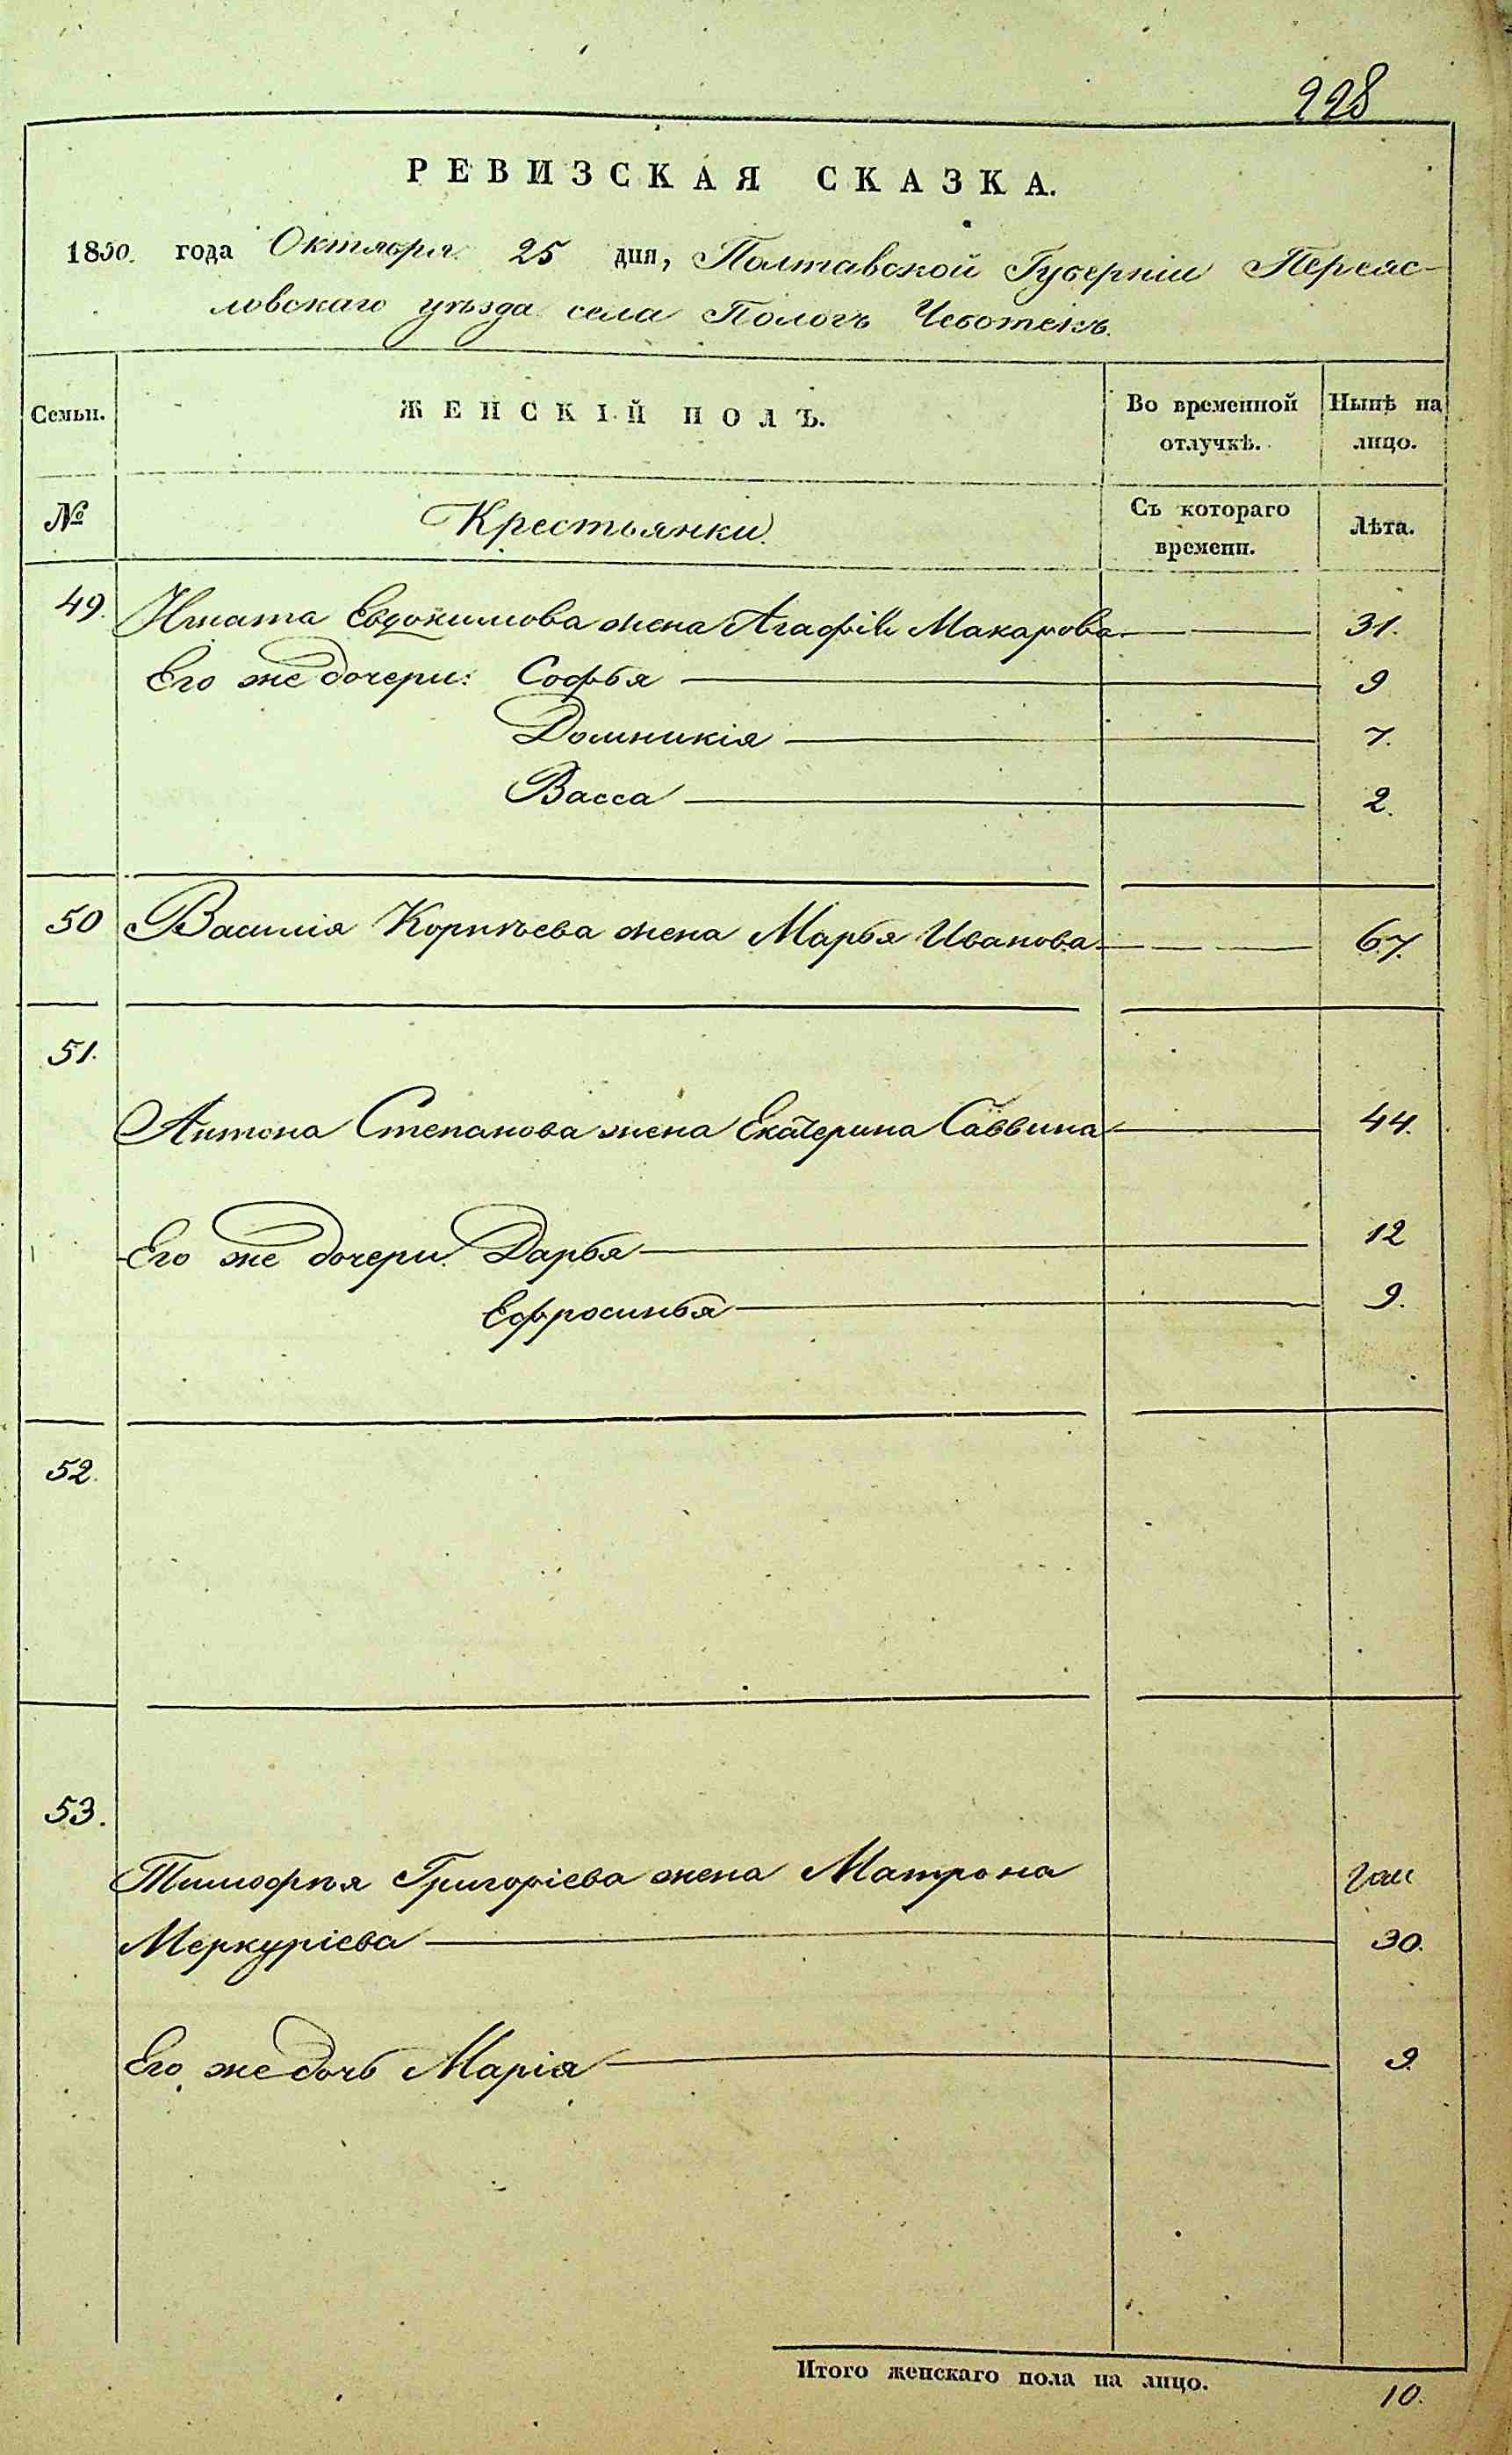 228
РЕВИЗСКАЯ СКАЗКА.
1850. года Октября 25 дня, Полтавской Губерніи Переяс-
ловскаго уѣзда села Пологъ Чеботекъ.
Семьи.
ЖЕНСКІЙ ПОЛЪ.
Во временной отлучкѣ.
Нынѣ на лицо.
№
Крестьянки
Съ котораго времени.
Лѣта.
49. Игната Евдокимова жена Агафія Макарова 31.
Его же дочери: Софья 9
Домникія 7.
Васса 2.
50 Василія Корнѣева жена Марья Иванова 67.
51.
Антона Степанова жена Екатерина Саввина 44.
Его же дочери Дарья 12
Ефросинья 9.
52.
53.
Тимофѣя Григоріева жена Матрона
Меркуріева 30.
Его же дочь Марія 9.
Итого женскаго пола на лицо. 10.